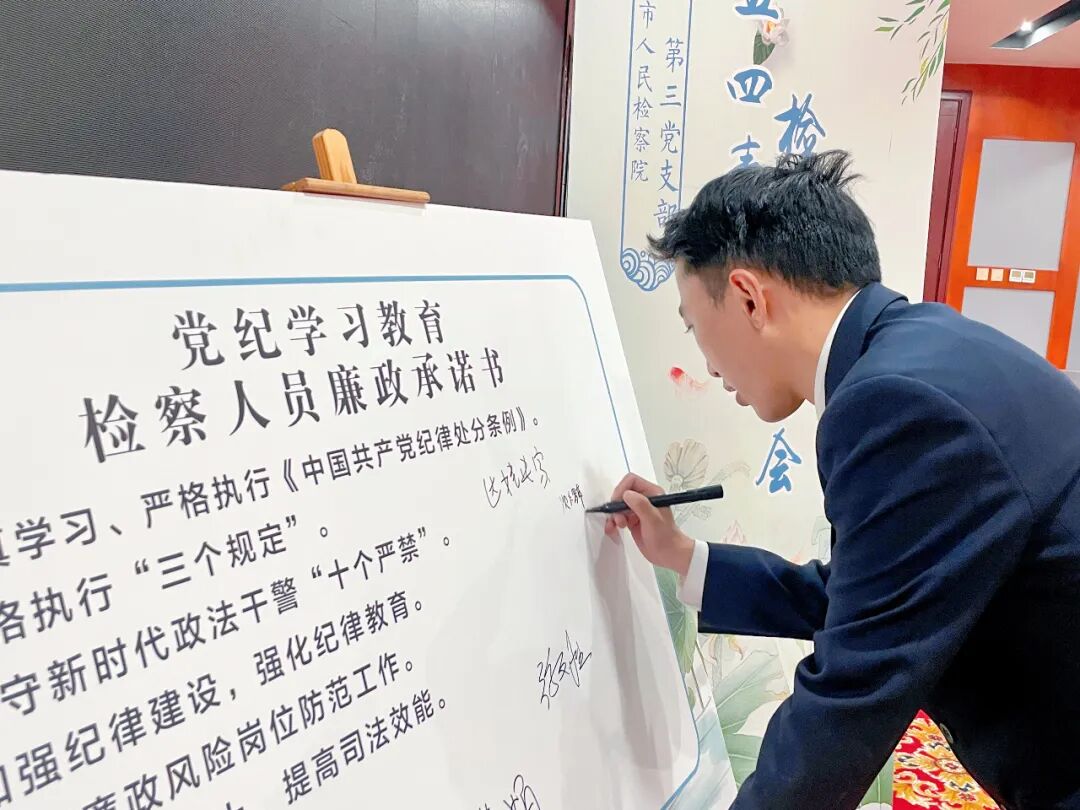 党纪学习教育
检察人员廉政承诺书
真学习、严格执行《中国共产党纪律处分条例》。
格执行“三个规定”。
守新时代政法干警“十个严禁”。
加强纪律建设，强化纪律教育。
廉政风险岗位防范工作。
提高司法效能。
市人民检察院
第三党支部
五四青
检
会